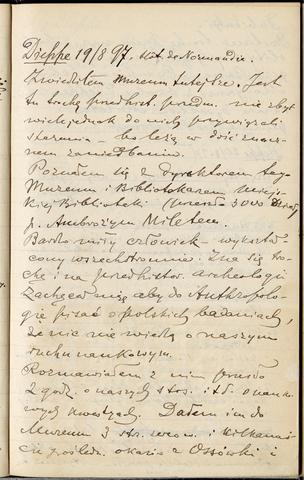 Dieppe 19/8 97. Hot. de Normandie.
Zwiedziłem muzeum tutejsze. Jest
tu trochę przedhist. przedm. nie zbyt
wiele jednak do nich przywiązali
starania – bo leżą w dość znacz-
nem zaniedbaniu.
Poznałem się z dyrektorem tego
Muzeum i Bibliotekarzem miejs-
kiej Biblioteki
p. Ambrożym Miletem.
Bardzo miły człowiek – wykształ-
cony wszechstronnie. Zna się tro-
chę i na przedhistor. archeologii
Zachęcał mię aby do Anthropolo-
gie pisać o polskich badaniach,
że nic nie wiedzą o naszym
ruchu naukowym.
Rozmawiałem z nim przeszło
2 godz. o naszych stos. i t.d. o nauko-
wych kwestyach. Dałem im do
Muzeum 3 i kilkanaś-
cie okazów z Ossówki i